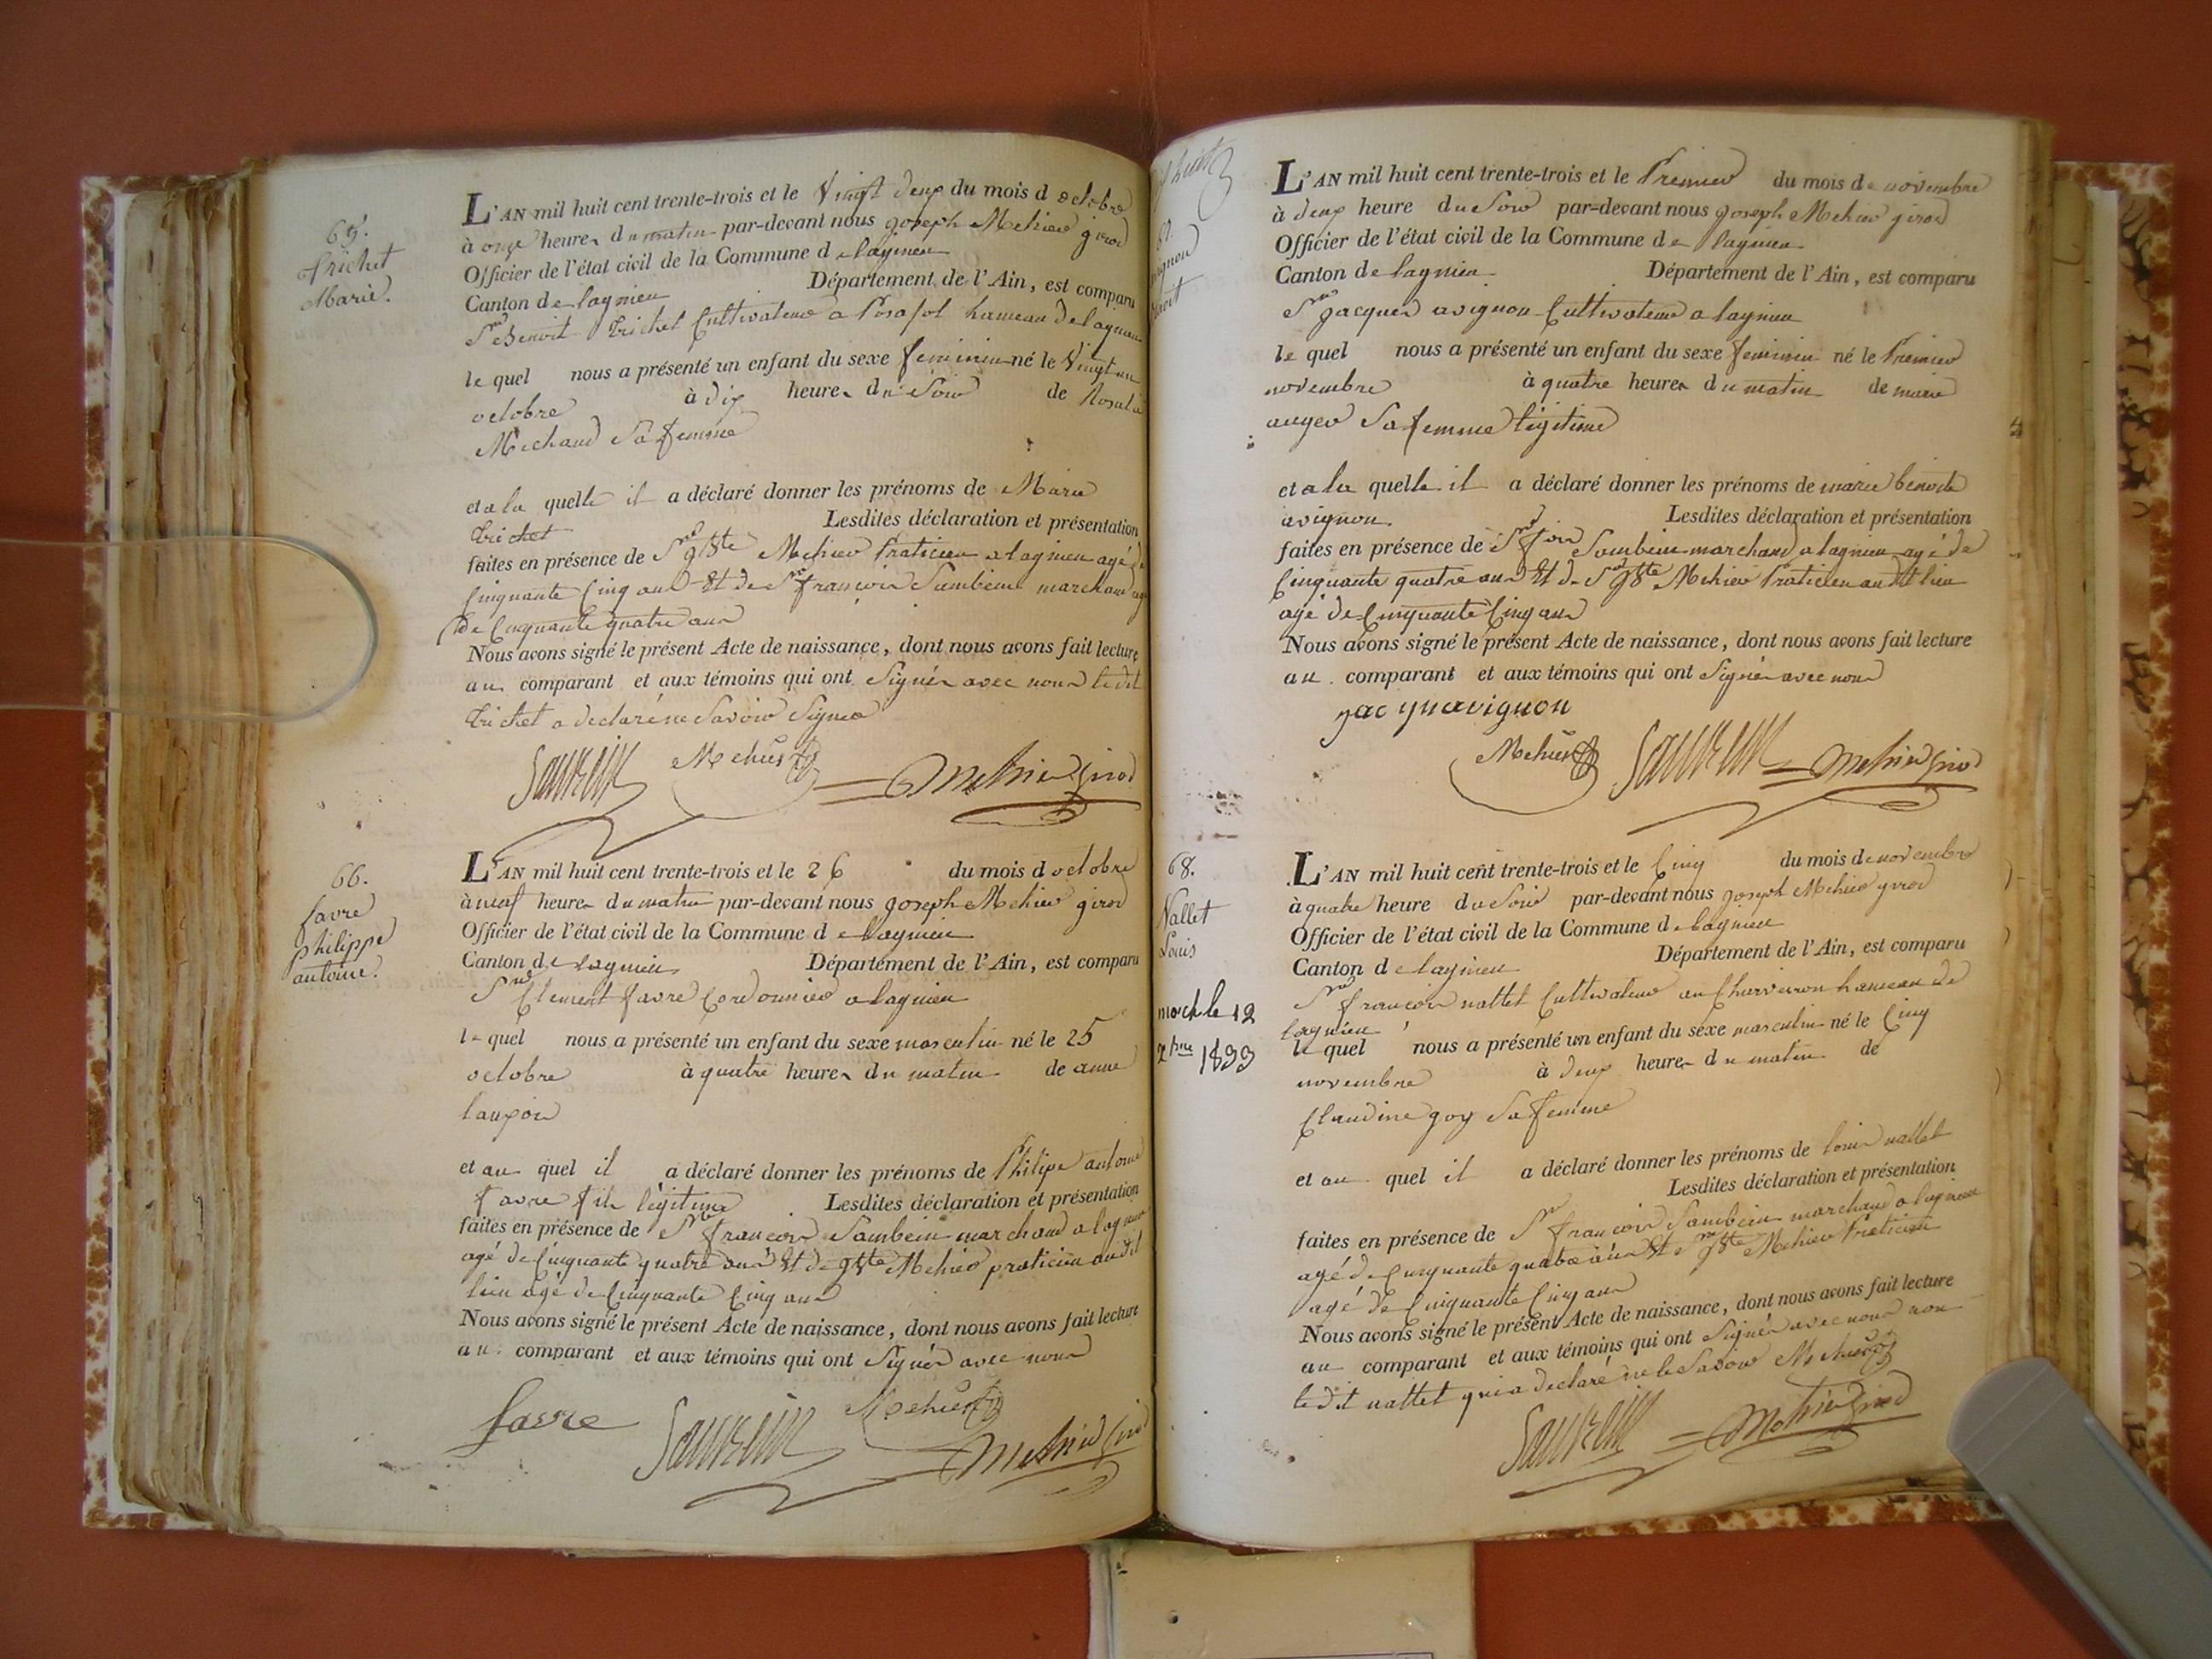 65.
trichet
Marie.
L'AN mil huit cent trente-trois et le Vingt deux du mois d octobre
à onze heures du matin par-devant nous joseph Mehier girod
Officier de l'état civil de la Commune de lagnieu
Canton de lagnieu Département de l'Ain, est comparu
Sr Benoit trichet Cultivateur a Posafol hameau de lagnieu
le quel nous a présenté un enfant du sexe feminin né le Vingt un
octobre à dix heures du Soir de Rosalie
Michaud Sa femme
et a la quelle il a déclaré donner les prénoms de Marie
trichet Lesdites déclaration et présentation
faites en présence de Sr jBte Mehier Praticien a lagnieu agé de
Cinquante Cinq ans Et de Sr françois Sambein marchand agé
de Cinquante quatre ans
Nous avons signé le présent Acte de naissance, dont nous avons fait lecture
au comparant et aux témoins qui ont Signés avec nous le dit
trichet a declaré ne Savoir Signer
Mehier
Mehier Girod
66.
favre
philippe
antoine.
L'AN mil huit cent trente-trois et le 26 du mois d octobre
à neuf heures du matin par-devant nous joseph Mehier girod
Officier de l'état civil de la Commune de lagnieu
Canton de lagnieu Département de l'Ain, est comparu
Sr Clement favre Cordonnier a lagnieu
le quel nous a présenté un enfant du sexe masculin né le 25
octobre à quatre heures du matin de anne
et au quel il a déclaré donner les prénoms de Philipe antoine
favre fils légitime Lesdites déclaration et présentation
faites en présence de Sr françois Sambein marchand a lagnieu
agé de Cinquante quatre ans Et de jBte Mehier praticien au dit
lieu agé de Cinquante Cinq ans
Nous avons signé le présent Acte de naissance, dont nous avons fait lecture
au comparant et aux témoins qui ont Signés avec nous
favre
Mehier
Mehier Girod
67.
avignon
L'AN mil huit cent trente-trois et le Premier du mois de novembre
à deux heure du Soir par-devant nous joseph Mehier girod
Officier de l'état civil de la Commune de lagnieu
Canton de lagnieu Département de l'Ain, est comparu
Sr jacques avignon Cultivateur a lagnieu
le quel nous a présenté un enfant du sexe feminin né le Premier
novembre à quatre heures du matin de marie
auger Sa femme légitime
et a la quelle il a déclaré donner les prénoms de marie benoite
avignon. Lesdites déclaration et présentation
faites en présence de Sr fois Sambein marchand a lagnieu agé de
Cinquante quatre ans Et de Sr jBte Mehier Praticien au dit lieu
agé de Cinquante Cinq ans
Nous avons signé le présent Acte de naissance, dont nous avons fait lecture
au comparant et aux témoins qui ont Signés avec nous
jacqu avignon
Mehier
Mehier Girod
68.
Nallet
Louis
mort le 12
xbre 1833
L'AN mil huit cent trente-trois et le Cinq du mois de novembre
à quatre heure du Soir par-devant nous joseph Mehier girod
Officier de l'état civil de la Commune de lagnieu
Canton de lagnieu Département de l'Ain, est comparu
Sr françois nallet Cultivateur au Charveyron hameau de
lagnieu
le quel nous a présenté un enfant du sexe masculin né le Cinq
novembre à deux heures du matin de
Claudine goy Sa femme
et au quel il a déclaré donner les prénoms de louis nallet
Lesdites déclaration et présentation
faites en présence de Sr françois Sambein marchand a lagnieu
agé de Cinquante quatre ans Et Sr jBte Mehier Praticien
agé de Cinquante Cinq ans
Nous avons signé le présent Acte de naissance, dont nous avons fait lecture
au comparant et aux témoins qui ont Signés avec nous non
le dit nallet qui a declaré ne le Savoir Mehier
Mehier Girod